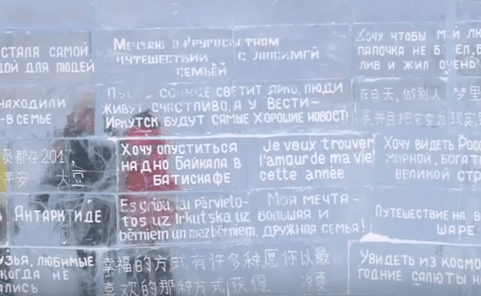 СТАЛА САМОЙ
ДОЙ ДЛЯ ЛЮДЕЙ
Мечтаю о кругосветном
путешествии с любимой
семьёй
Хочу чтобы мой лю
папочка не бо
лив и жил очень
НАХОДИЛИ
В СЕМЬЕ
солнце светит ярко, люди
живут счастливо, а у Вести-
Иркутск будут самые хорошие новости!
在白天,做别人 梦里
并且把它变为现实
员都在201
平安 大豆
Хочу опуститься
на дно Байкала в
батискафе
Je veux trouver
l'amour de ma vie
cette année
Хочу видеть Росс
мирной, богат
великой стр
АНТАРКТИДЕ
Es gribu, lai pārvieto-
tos uz Irkutsku uz
bērniem un mazbērniem.
Моя мечта-
большая и
дружная семья!
Путешествие на в
шаре
узья, любимые
когда не
ались
幸福的方式有许多种,愿你以最
喜欢的那种方式获得
Увидеть из космо
годние салюты н